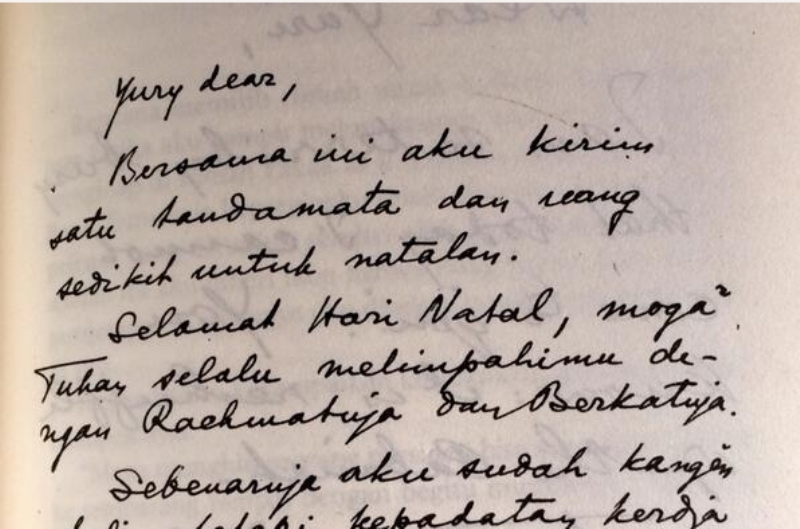 Yury dear,
Bersama ini aku kirim
satu tandamata dan uang
sedikit untuk natalan.
Selamat Hari Natal, moga²
Tuhan selalu melimpahimu de-
ngan Rachmatnja dan Berkatnja.
Sebenarnja aku sudah kangen
tetapi kepadatan kerdja